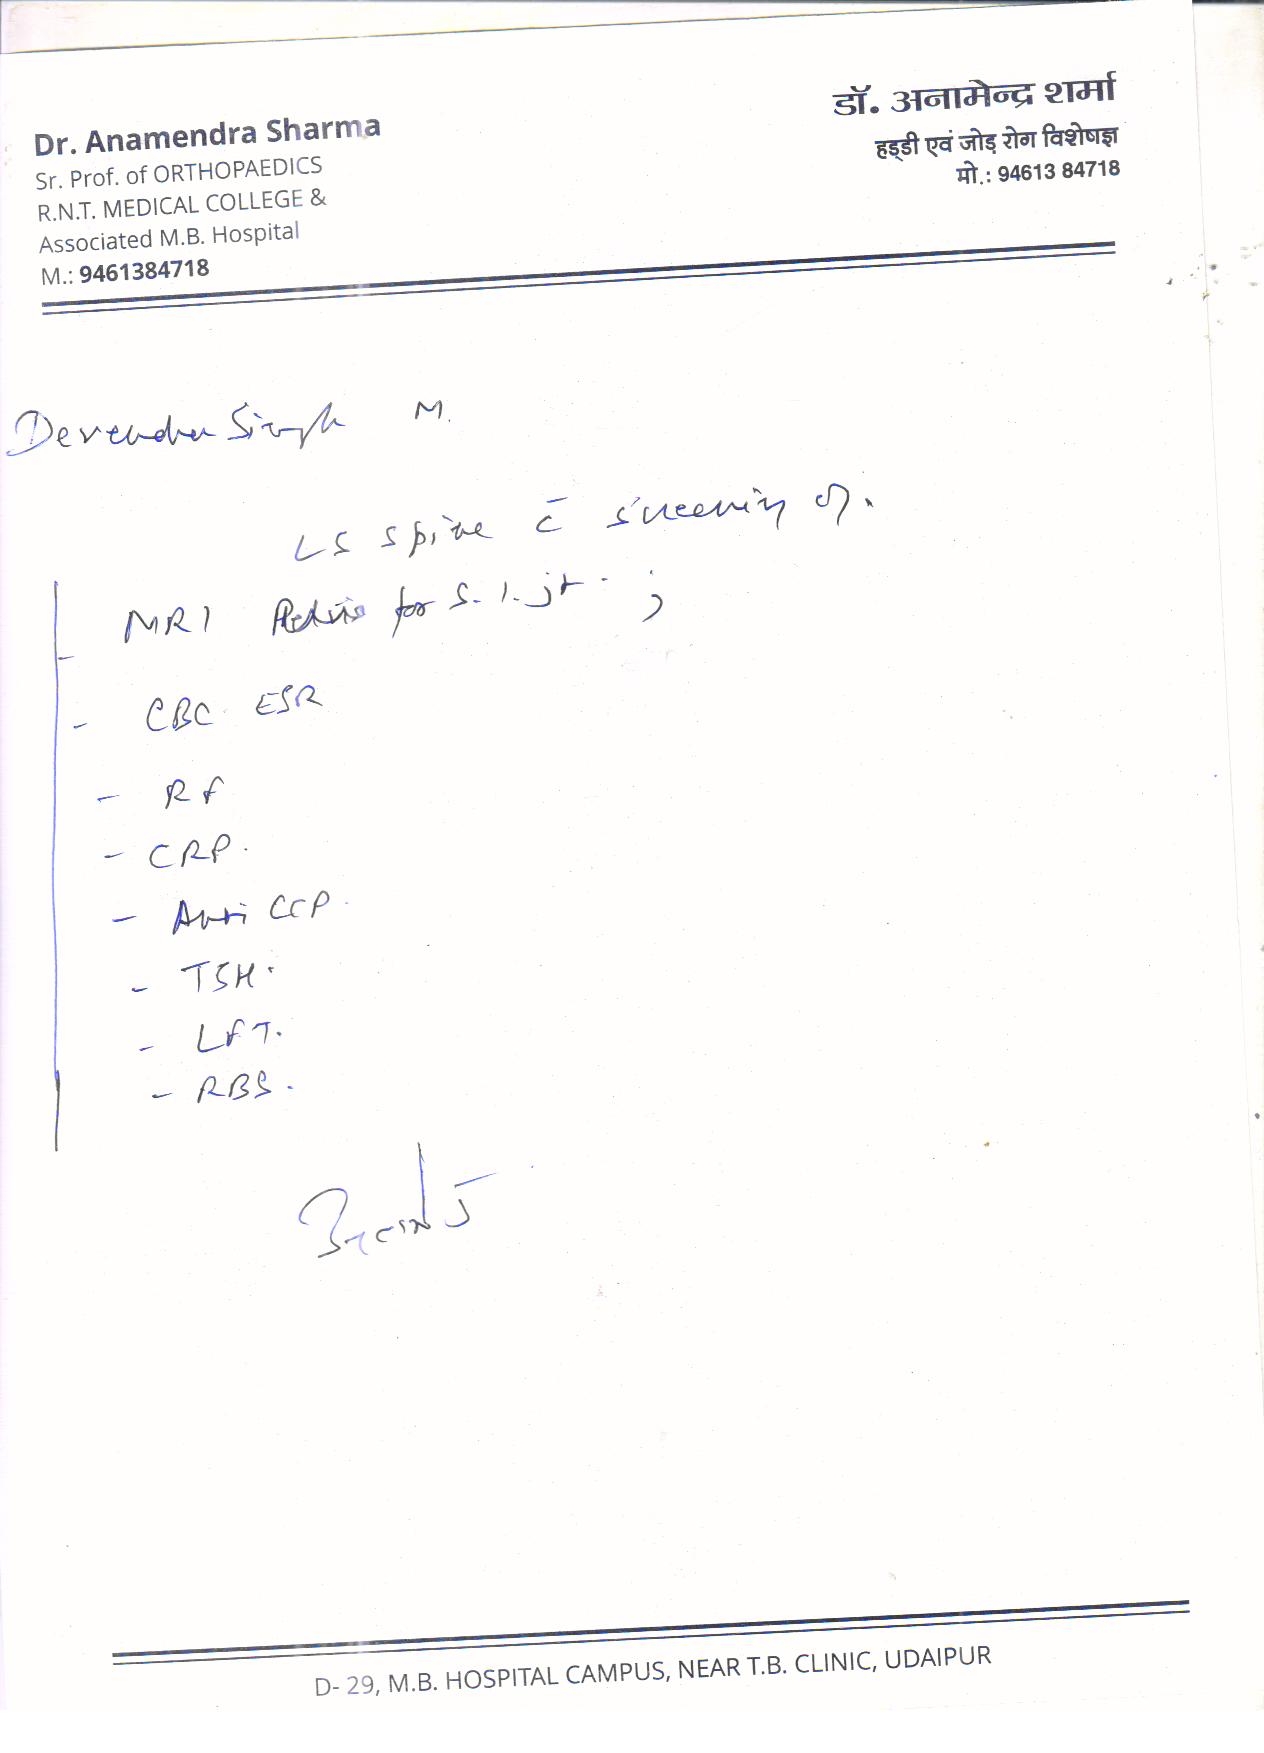 Dr. Anamendra Sharma
Sr. Prof. of ORTHOPAEDICS
R.N.T. MEDICAL COLLEGE &
Associated M.B. Hospital
M.: 9461384718
डॉ. अनामेन्द्र शर्मा
हड्डी एवं जोड़ रोग विशेषज्ञ
मो.: 94613 84718
Devendra Singh M.
LS spine c̄ screening of.
MRI Pelvis for S.I. jt. ;
- CBC ESR
- RF
- CRP.
- Anti CCP.
- TSH.
- LFT.
- RBS.
D- 29, M.B. HOSPITAL CAMPUS, NEAR T.B. CLINIC, UDAIPUR